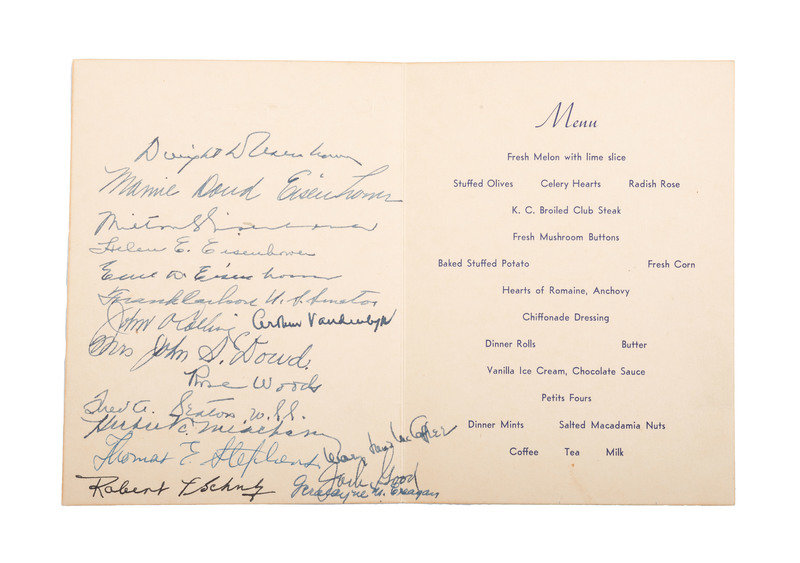 Dwight D Eisenhower
Mamie Doud Eisenhower
Milton S Eisenhower
Helen E. Eisenhower
Earl D Eisenhower
Frank Carlson U.S. Senator
John Arthur Vandenberg Jr
Mrs John S. Doud.
Rose Woods
Fred A. Seaton
Thomas E. Stephens
Jack Good
Robert L Schulz
Menu
Fresh Melon with lime slice
Stuffed Olives Celery Hearts Radish Rose
K. C. Broiled Club Steak
Fresh Mushroom Buttons
Baked Stuffed Potato Fresh Corn
Hearts of Romaine, Anchovy
Chiffonade Dressing
Dinner Rolls Butter
Vanilla Ice Cream, Chocolate Sauce
Petits Fours
Dinner Mints Salted Macadamia Nuts
Coffee Tea Milk